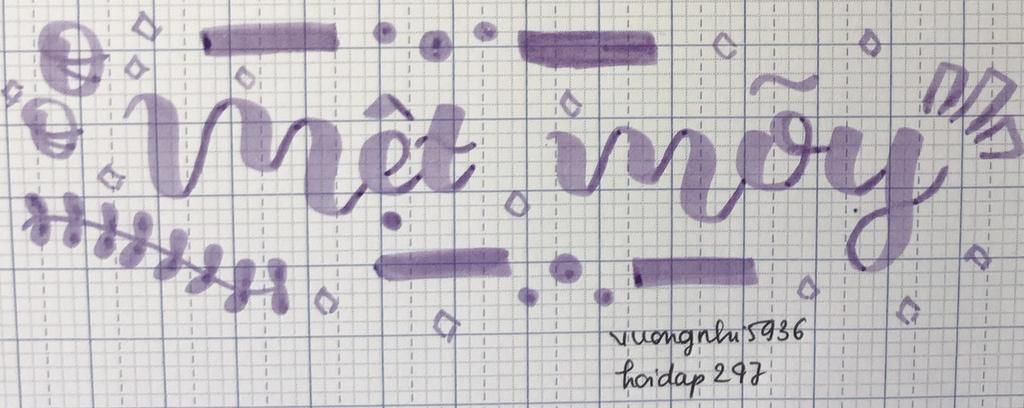 Mệt mõy
vuongnhu5936
hoidap247